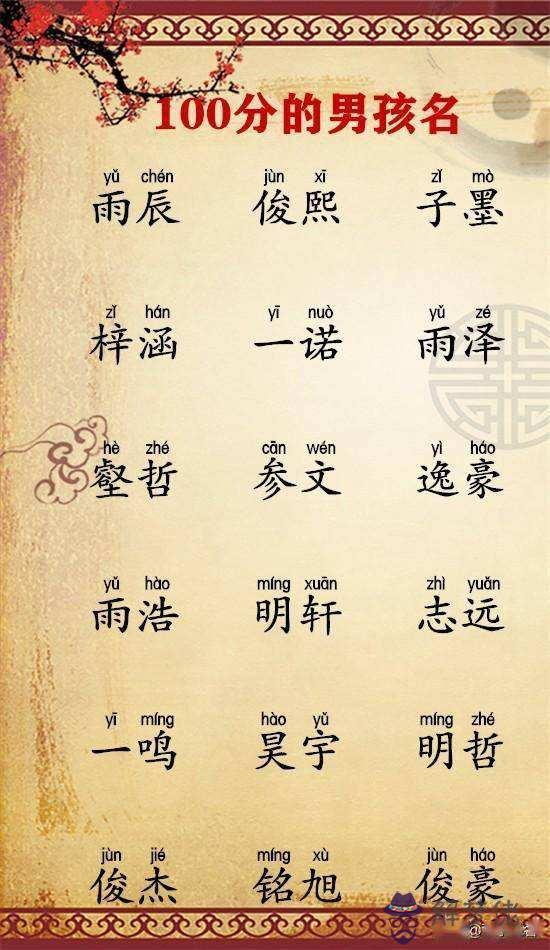 100分的男孩名
yǔ chén jùn xī zǐ mò
雨辰 俊熙 子墨
zǐ hán yī nuò yǔ zé
梓涵 一诺 雨泽
hè zhé cān wén yì háo
壑哲 参文 逸豪
yǔ hào míng xuān zhì yuǎn
雨浩 明轩 志远
yī míng hào yǔ míng zhé
一鸣 昊宇 明哲
jùn jié míng xù jùn háo
俊杰 铭旭 俊豪